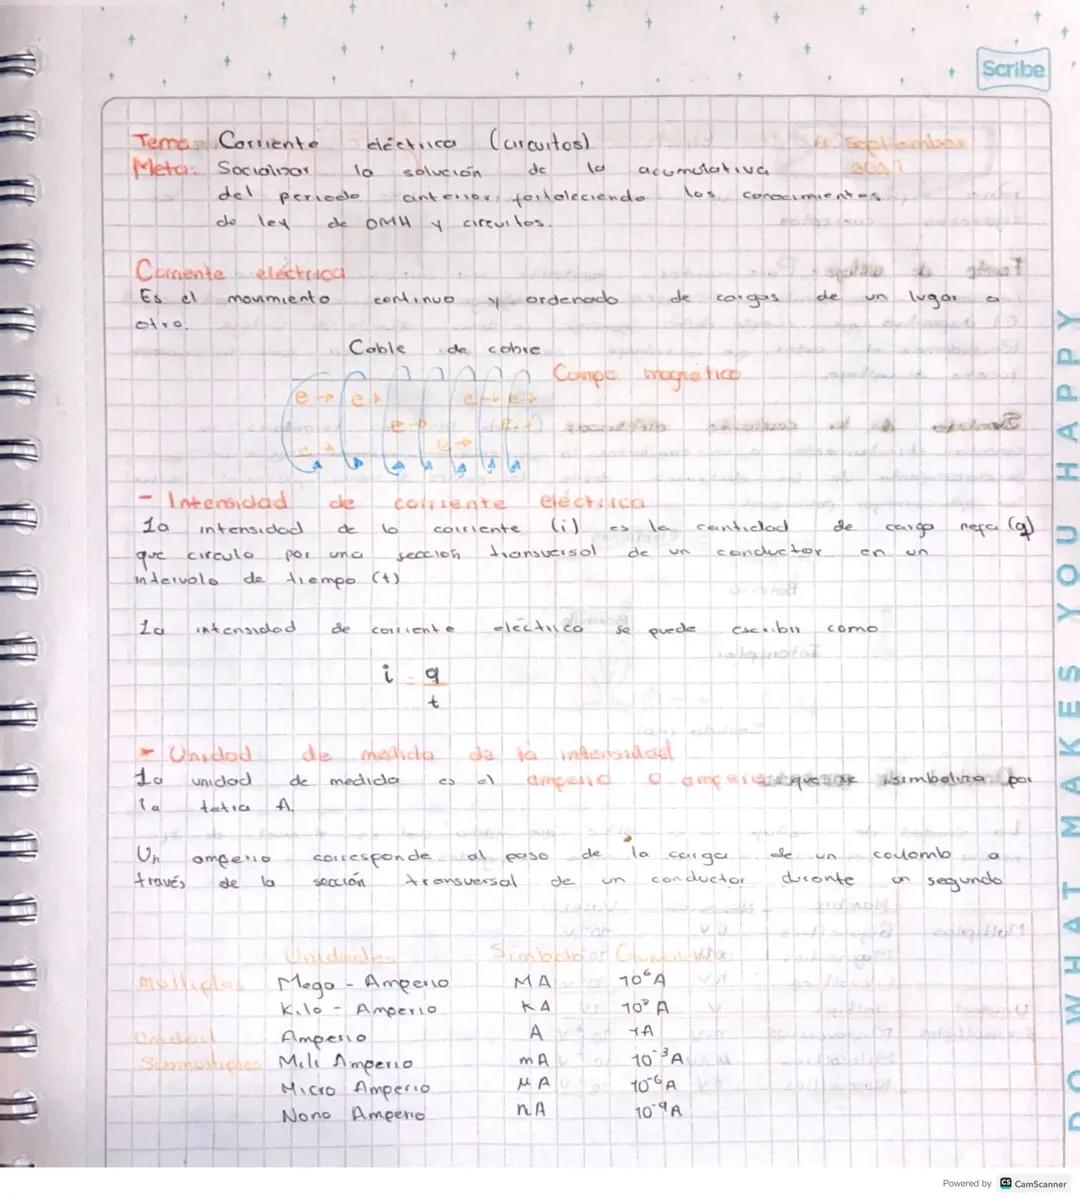 Scribe
Tema: Corriente eléctrica (circuitos) Septiembre
Meta: Socializar la solución de la acumulativa
del periodo anterior, fortaleciendo los conocimientos
de ley de OMH y circuitos.
Corriente eléctrica
Es el movimiento continuo y ordenado de cargas de un lugar a
otro.
Cable de cobre
Campo magnético
e→ e→ e→ e→
e→
e→ e→
- Intensidad de corriente eléctrica
La intensidad de la corriente (i) es la cantidad de carga neta (q)
que circula por una sección transversal de un conductor en un
intervalo de tiempo (t)
La intensidad de corriente eléctrica se puede escribir como
i = q
t
- Unidad de medida de la intensidad
La unidad de medida es el amperio o ampere que se simboliza por
la letra A.
Un amperio corresponde al paso de la carga de un coulomb a
través de la sección transversal de un conductor durante un segundo
Unidades Símbolo Equivalencia
Multiplos Mega - Amperio MA 10⁶A
Kilo - Amperio KA 10³ A
Unidad Amperio A 1A
Submultiplos Mili Amperio mA 10⁻³A
Micro Amperio μA 10⁻⁶A
Nano Amperio nA 10⁻⁹A
DO WHAT MAKES YOU HAPPY
Powered by CS CamScanner